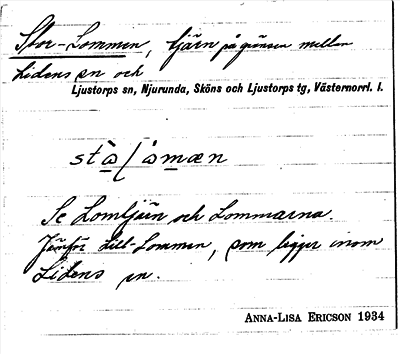 Stor-Lommen, tjärn på gränsen mellan
Lidens sn och
Ljustorps sn, Njurunda, Sköns och Ljustorps tg, Västernorrl. l.
Se Lomtjärn och Lommarna.
Jämför Lill-Lommen, som ligger inom
Lidens sn.
ANNA-LISA ERICSON 1934